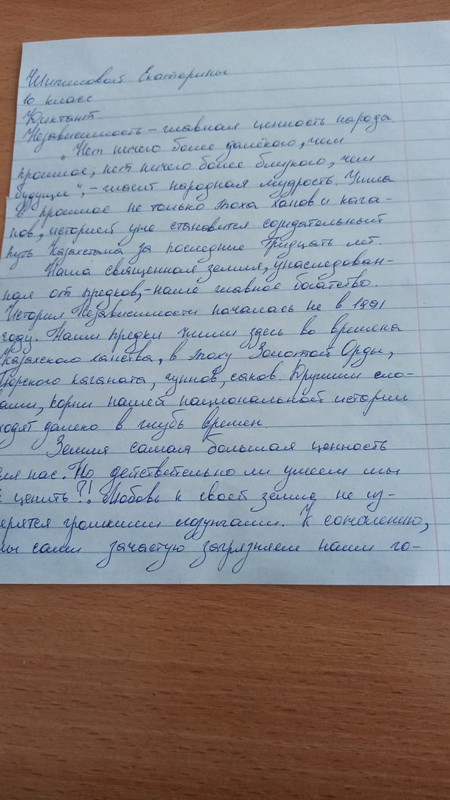 Шипиловой Екатерины
10 класс
Диктант
Независимость – главная ценность народа.
"Нет ничего более далёкого, чем
прошлое, нет ничего более близкого, чем
будущее", – гласит народная мудрость. Ушла
в прошлое не только эпоха ханов и кага-
нов, историей уже становится созидательный
путь Казахстана за последние тридцать лет.
Наша священная земля, унаследован-
ная от предков, – наше главное богатство.
История Независимости началась не в 1991
году. Наши предки жили здесь во времена
Казахского ханства, в эпоху Золотой Орды,
Тюркского каганата, гуннов, саков. Другими сло-
вами, корни нашей национальной истории
ходят далеко в глубь времен.
Земля самая большая ценность
для нас. Но действительно ли умеем мы
её ценить?! Любовь к своей земле не из-
меряется громкими лозунгами. К сожалению,
мы сами зачастую загрязняем наши го-